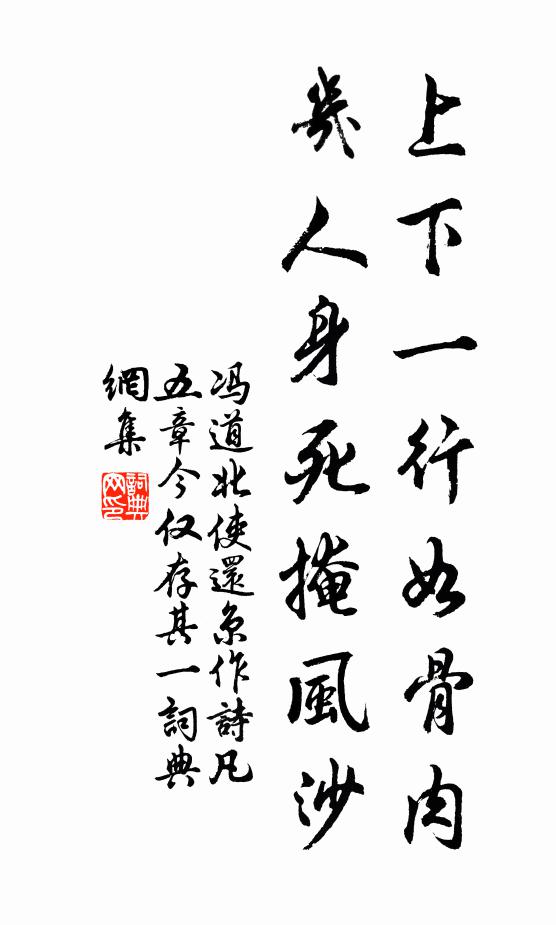 上下一行如骨肉
幾人身死掩風沙
冯道北使還京作詩凡
五章今仅存其一詞典
網集
詞典
网印